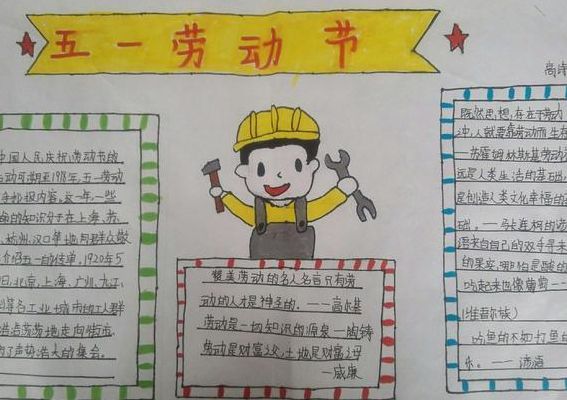 五一劳动节
中国人民庆祝劳动节的
活动可溯至1918年,五一劳动
手抄报内容。这一年,一些
革命的知识分子在上海、苏
州、杭州、汉口等地向群众散
介绍五一的传单。1920年5
日,北京、上海、广州、九江、
等各工业城市的工人群
浩浩荡荡地走向街市
了声势浩大的集会。
赞美劳动的名人名言只有劳
动的人才是神圣的。——高尔基
劳动是一切知识的源泉—陶铸
劳动是财富之父,土地是财富之母
—威廉
高诗
既然思想,存在于劳动
中,人就要靠劳动而生存
苏霍姆林斯基劳动
远是人类生活的基础,
是创造人类文化幸福的
础。——马卡连柯
源于自己的双手寻来
的果实,哪怕是酸的
吃起来也像葡萄——
(维吾尔族)
吃鱼的不如打鱼的
乐。——谚语